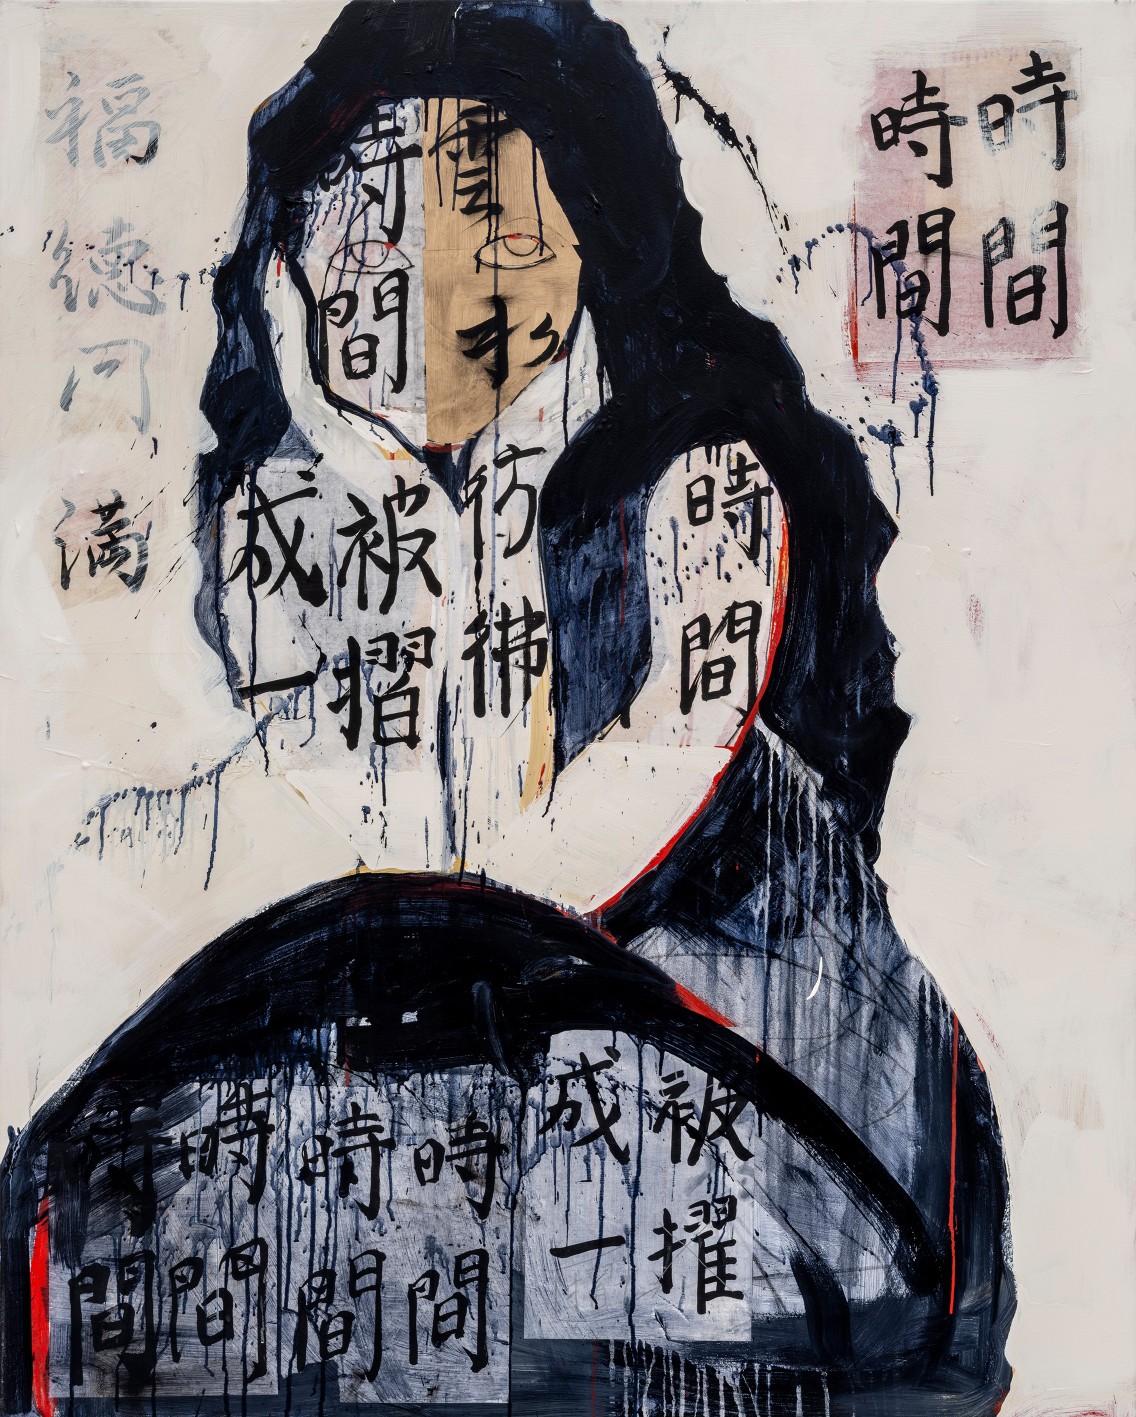 時間
時間
福德円満
雲
時間
時間
彷彿
被摺
成一
被擢
成一
時間
時間
時間
時間